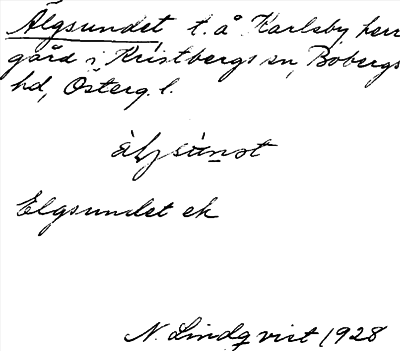 Älgsundet t. å Karlsby herr
gård i Kristbergs sn, Bobergs
hd, Österg. l.
äljsúnst
Elgsundet ek
N. Lindqvist 1928